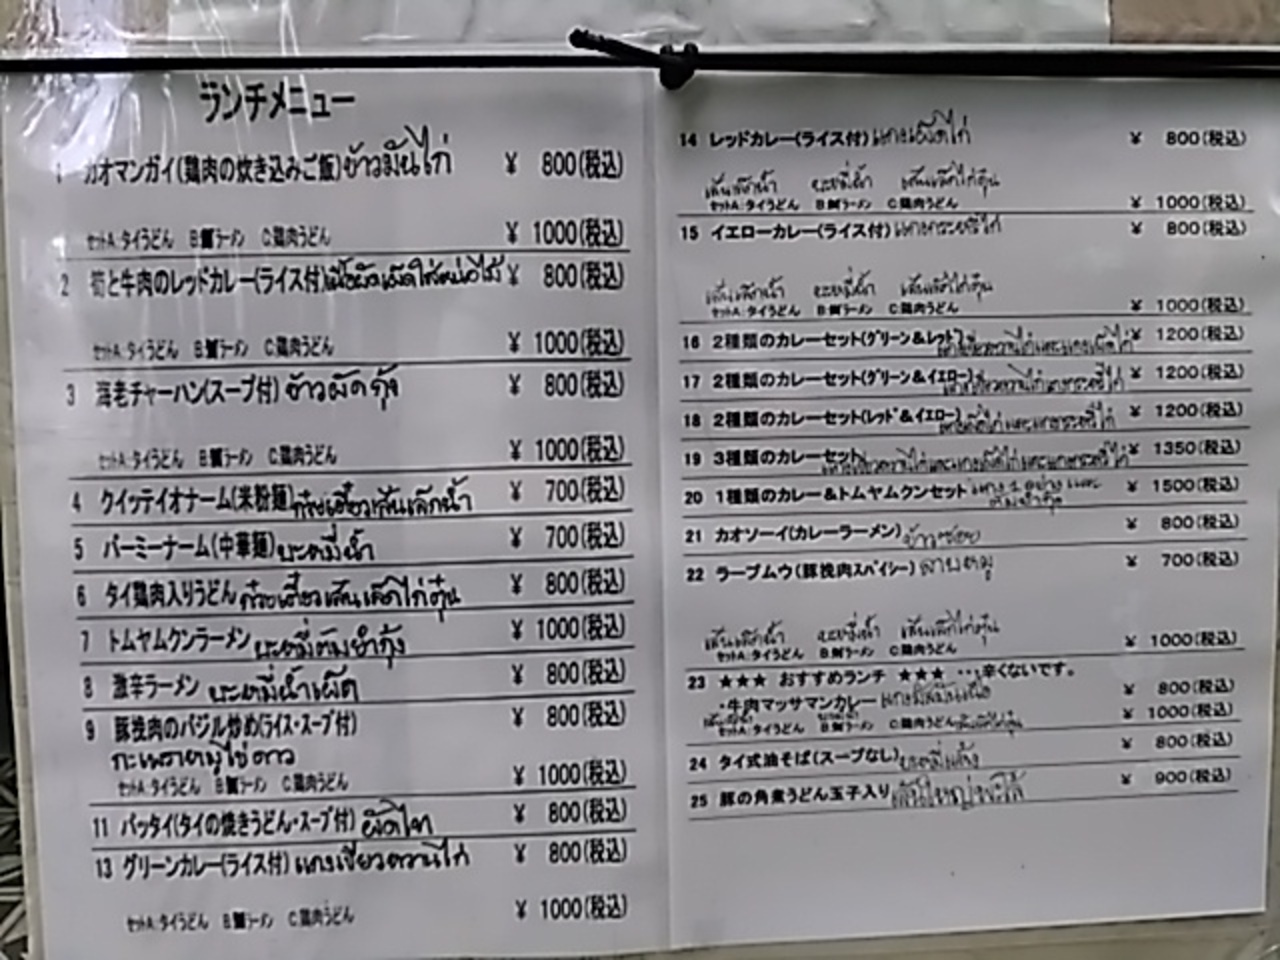 ランチメニュー
1 カオマンガイ(鶏肉の炊き込みご飯)ข้าวมันไก่ ¥ 800(税込)
セットA:タイうどん B:蟹ラーメン C:鶏肉うどん ¥ 1000(税込)
2 筍と牛肉のレッドカレー(ライス付) ¥ 800(税込)
セットA:タイうどん B:蟹ラーメン C:鶏肉うどん ¥ 1000(税込)
3 海老チャーハン(スープ付) ข้าวผัดกุ้ง ¥ 800(税込)
セットA:タイうどん B:蟹ラーメン C:鶏肉うどん ¥ 1000(税込)
4 クイッテイオナーム(米粉麺)ก๋วยเตี๋ยวเส้นเล็กน้ำ ¥ 700(税込)
5 バーミーナーム(中華麺)บะหมี่น้ำ ¥ 700(税込)
6 タイ鶏肉入りうどん ก๋วยเตี๋ยวเส้นเล็กไก่ตุ๋น ¥ 800(税込)
7 トムヤムクンラーメン บะหมี่ต้มยำกุ้ง ¥ 1000(税込)
8 激辛ラーメン บะหมี่น้ำเผ็ด ¥ 800(税込)
9 豚挽肉のバジル炒め(ライス・スープ付) ¥ 800(税込)
กะเพราหมูไข่ดาว
セットA:タイうどん B:蟹ラーメン C:鶏肉うどん ¥ 1000(税込)
11 パッタイ(タイの焼きうどん・スープ付) ผัดไท ¥ 800(税込)
13 グリーンカレー(ライス付) แกงเขียวหวานไก่ ¥ 800(税込)
セットA:タイうどん B:蟹ラーメン C:鶏肉うどん ¥ 1000(税込)
14 レッドカレー(ライス付) แกงเผ็ดไก่ ¥ 800(税込)
เส้นเล็กน้ำ บะหมี่น้ำ เส้นเล็กไก่ตุ๋น
セットA:タイうどん B:蟹ラーメン C:鶏肉うどん ¥ 1000(税込)
15 イエローカレー(ライス付) แกงกะหรี่ไก่ ¥ 800(税込)
เส้นเล็กน้ำ บะหมี่น้ำ เส้นเล็กไก่ตุ๋น
セットA:タイうどん B:蟹ラーメン C:鶏肉うどん ¥ 1000(税込)
16 2種類のカレーセット(グリーン&レッド) ¥ 1200(税込)
17 2種類のカレーセット(グリーン&イエロー) ¥ 1200(税込)
18 2種類のカレーセット(レッド&イエロー) ¥ 1200(税込)
19 3種類のカレーセット ¥ 1350(税込)
20 1種類のカレー&トムヤムクンセット แกง 1 อย่าง และ ¥ 1500(税込)
ต้มยำกุ้ง
21 カオソーイ(カレーラーメン) ข้าวซอย ¥ 800(税込)
22 ラープムウ(豚挽肉スパイシー) ลาบหมู ¥ 700(税込)
เส้นเล็กน้ำ บะหมี่น้ำ เส้นเล็กไก่ตุ๋น
セットA:タイうどん B:蟹ラーメン C:鶏肉うどん ¥ 1000(税込)
23 ★★★ おすすめランチ ★★★ …辛くないです。
・牛肉マッサマンカレー ¥ 800(税込)
セットA:タイうどん B:蟹ラーメン C:鶏肉うどん ¥ 1000(税込)
24 タイ式油そば(スープなし) บะหมี่แห้ง ¥ 800(税込)
25 豚の角煮うどん玉子入り ¥ 900(税込)